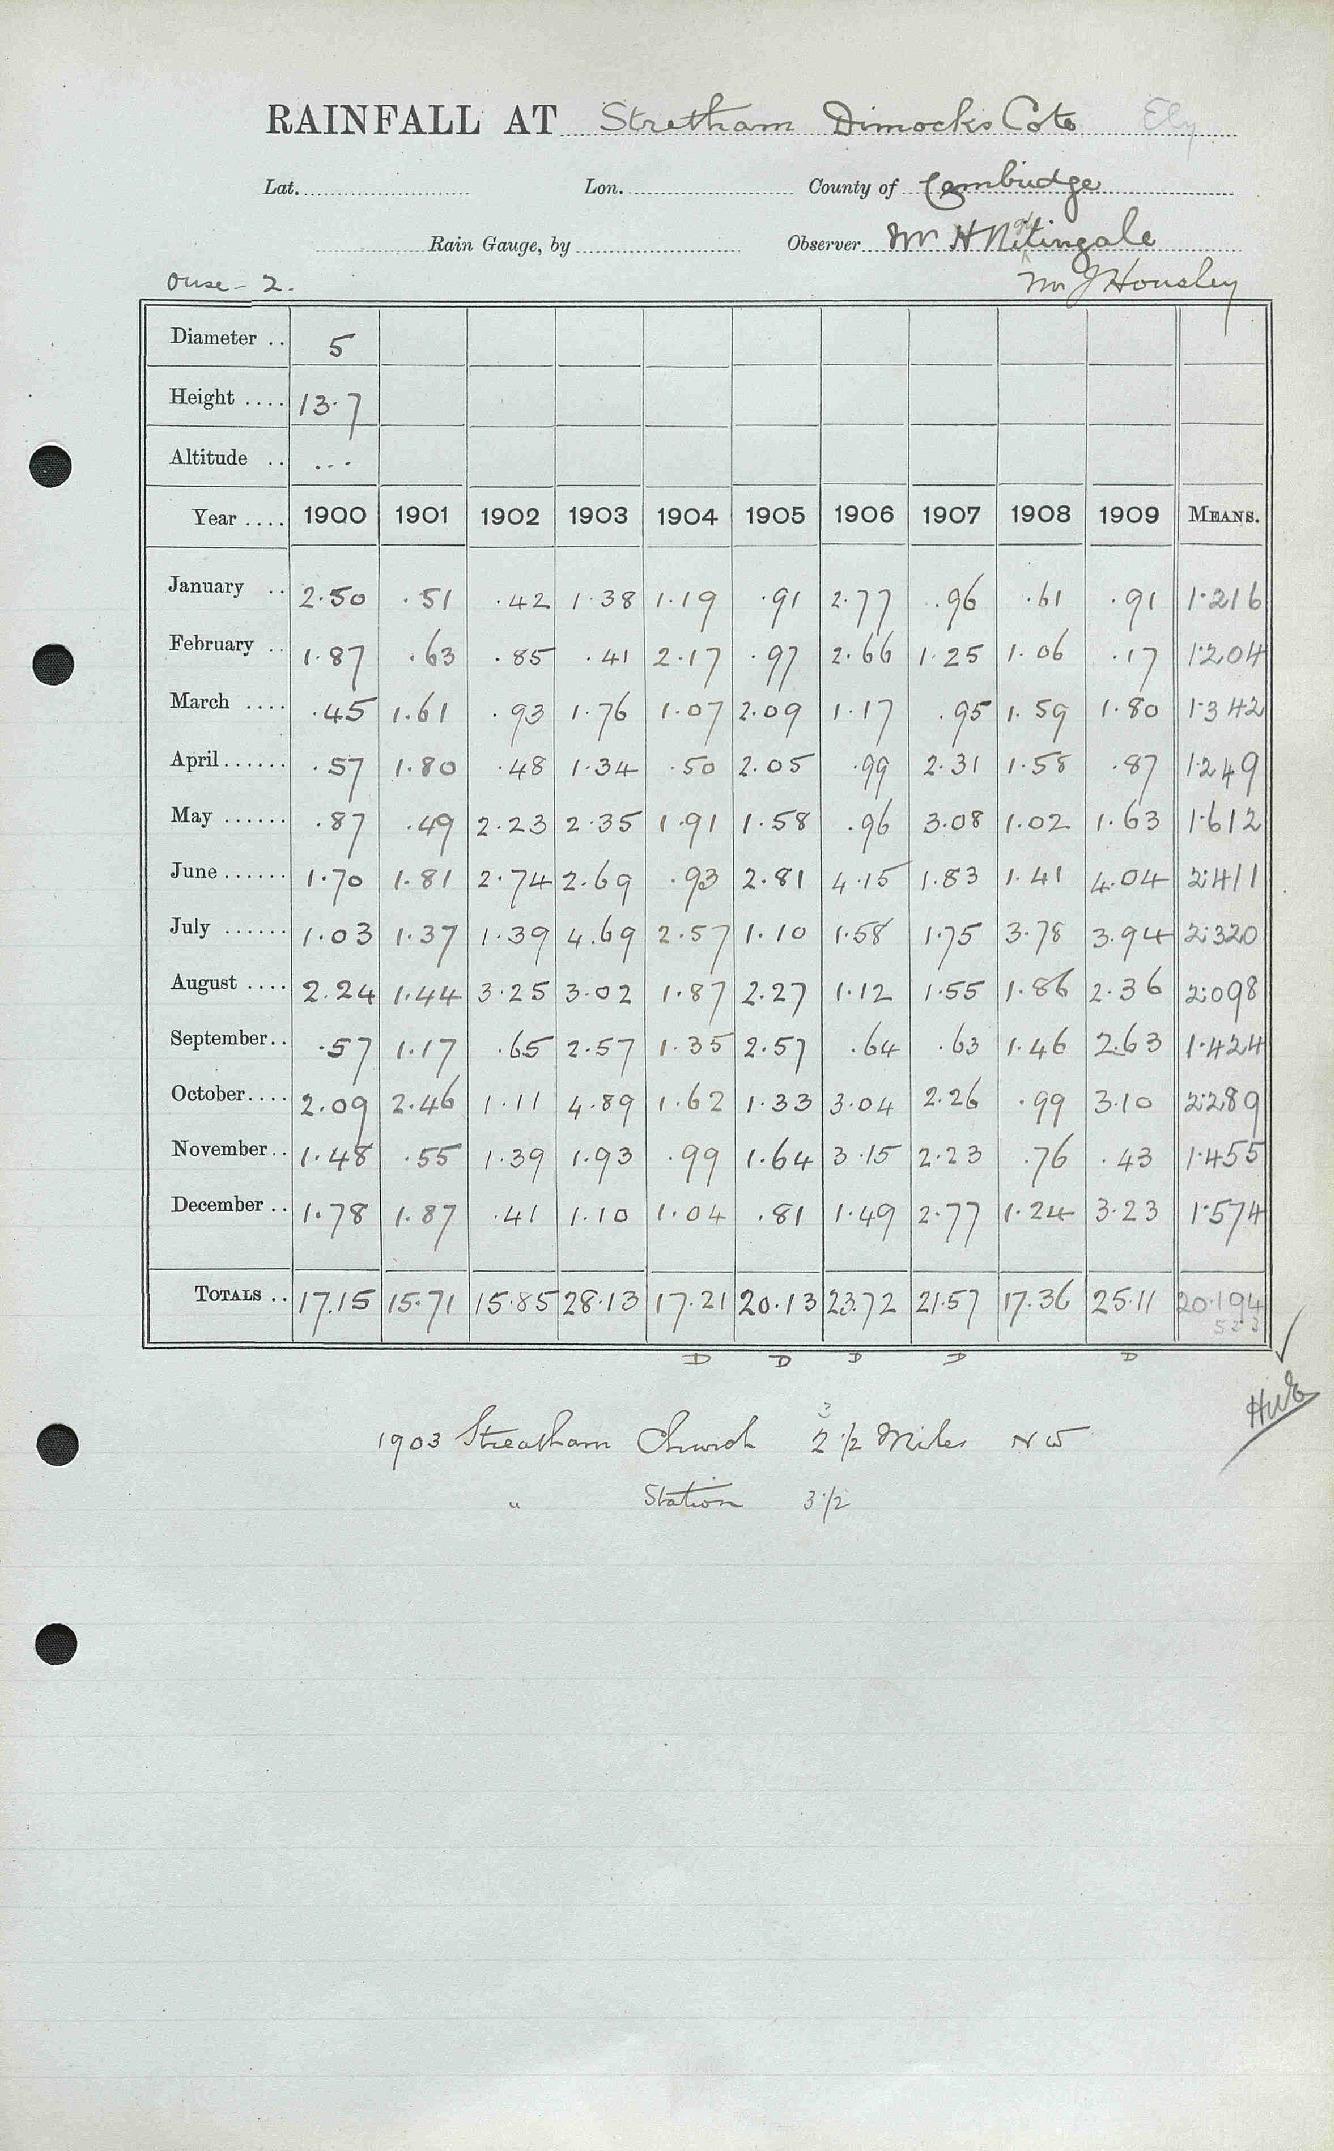 RAINFALL AT Stretham Dimocks Cote Ely
Lat. Lon. County of Cambridge
Rain Gauge, by Observer Mr H Nitingale
gh
Ouse - 2. Mr J Housley
Diameter .. 5
Height .... 13.7
Altitude .. ...
Year .... 1900 1901 1902 1903 1904 1905 1906 1907 1908 1909 MEANS.
January .. 2.50 .51 .42 1.38 1.19 .91 2.77 .96 .61 .91 1.216
February .. 1.87 .63 .85 .41 2.17 .97 2.66 1.25 1.06 .17 1.204
March .... .45 1.61 .93 1.76 1.07 2.09 1.17 .95 1.59 1.80 1.342
April...... .57 1.80 .48 1.34 .50 2.05 .99 2.31 1.58 .87 1.249
May ...... .87 .49 2.23 2.35 1.91 1.58 .96 3.08 1.02 1.63 1.612
June ...... 1.70 1.81 2.74 2.69 .93 2.81 4.15 1.83 1.41 4.04 2.411
July ...... 1.03 1.37 1.39 4.69 2.57 1.10 1.58 1.75 3.78 3.94 2.320
August .... 2.24 1.44 3.25 3.02 1.87 2.27 1.12 1.55 1.86 2.36 2.098
September.. .57 1.17 .65 2.57 1.35 2.57 .64 .63 1.46 2.63 1.424
October.... 2.09 2.46 1.11 4.89 1.62 1.33 3.04 2.26 .99 3.10 2.289
November.. 1.48 .55 1.39 1.93 .99 1.64 3.15 2.23 .76 .43 1.455
December .. 1.78 1.87 .41 1.10 1.04 .81 1.49 2.77 1.24 3.23 1.574
TOTALS .. 17.15 15.71 15.85 28.13 17.21 20.13 23.72 21.57 17.36 25.11 20.194
D D D D D
3
1903 Streatham Church 2 1/2 Miles NW
" Station 3 1/2